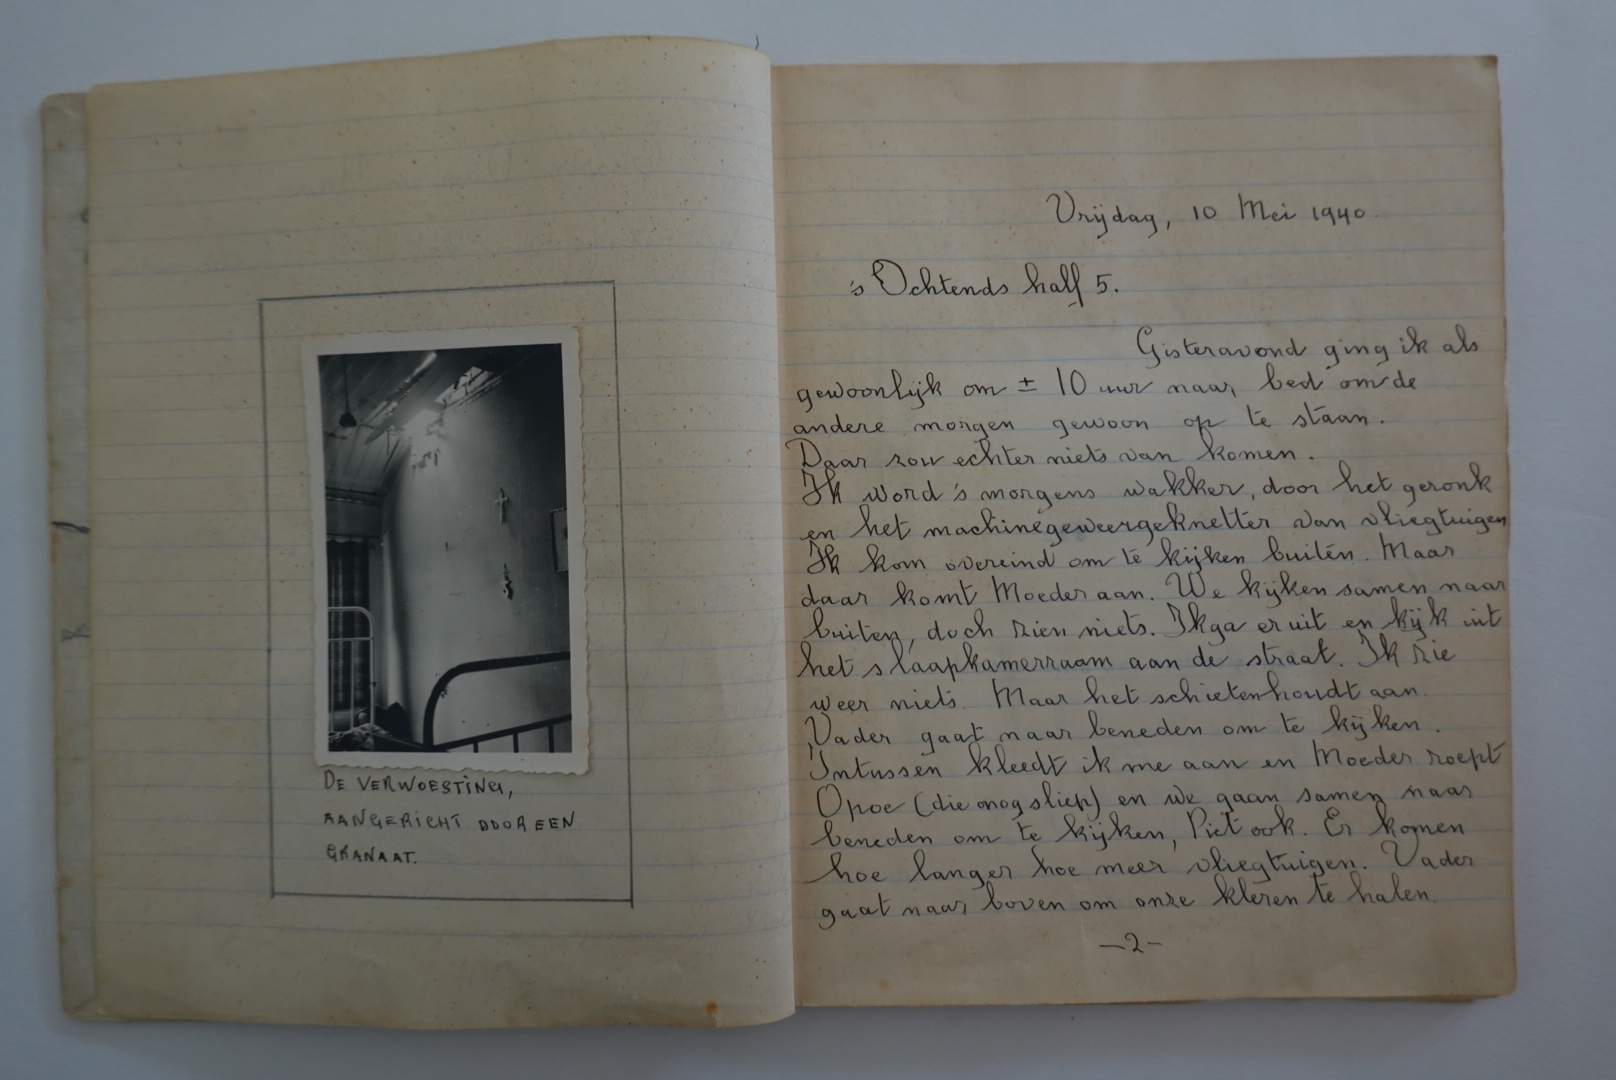 DE VERWOESTING,
AANGERICHT DOOR EEN
GRANAAT.
Vrijdag, 10 Mei 1940.
's Ochtends half 5.
Gisteravond ging ik als
gewoonlijk om ± 10 uur naar bed om de
andere morgen gewoon op te staan.
Daar zou echter niets van komen.
Ik word 's morgens wakker, door het geronk
en het machinegeweergeknetter van vliegtuigen
Ik kom overeind om te kijken buiten. Maar
daar komt Moeder aan. We kijken samen naar
buiten, doch zien niets. Ik ga er uit en kijk uit
het slaapkamerraam aan de straat. Ik zie
weer niets. Maar het schieten houdt aan.
Vader gaat naar beneden om te kijken.
Intussen kleedt ik me aan en Moeder roept
Opoe (die nog sliep) en we gaan samen naar
beneden om te kijken, Piet ook. Er komen
hoe langer hoe meer vliegtuigen. Vader
gaat naar boven om onze kleren te halen.
-2-